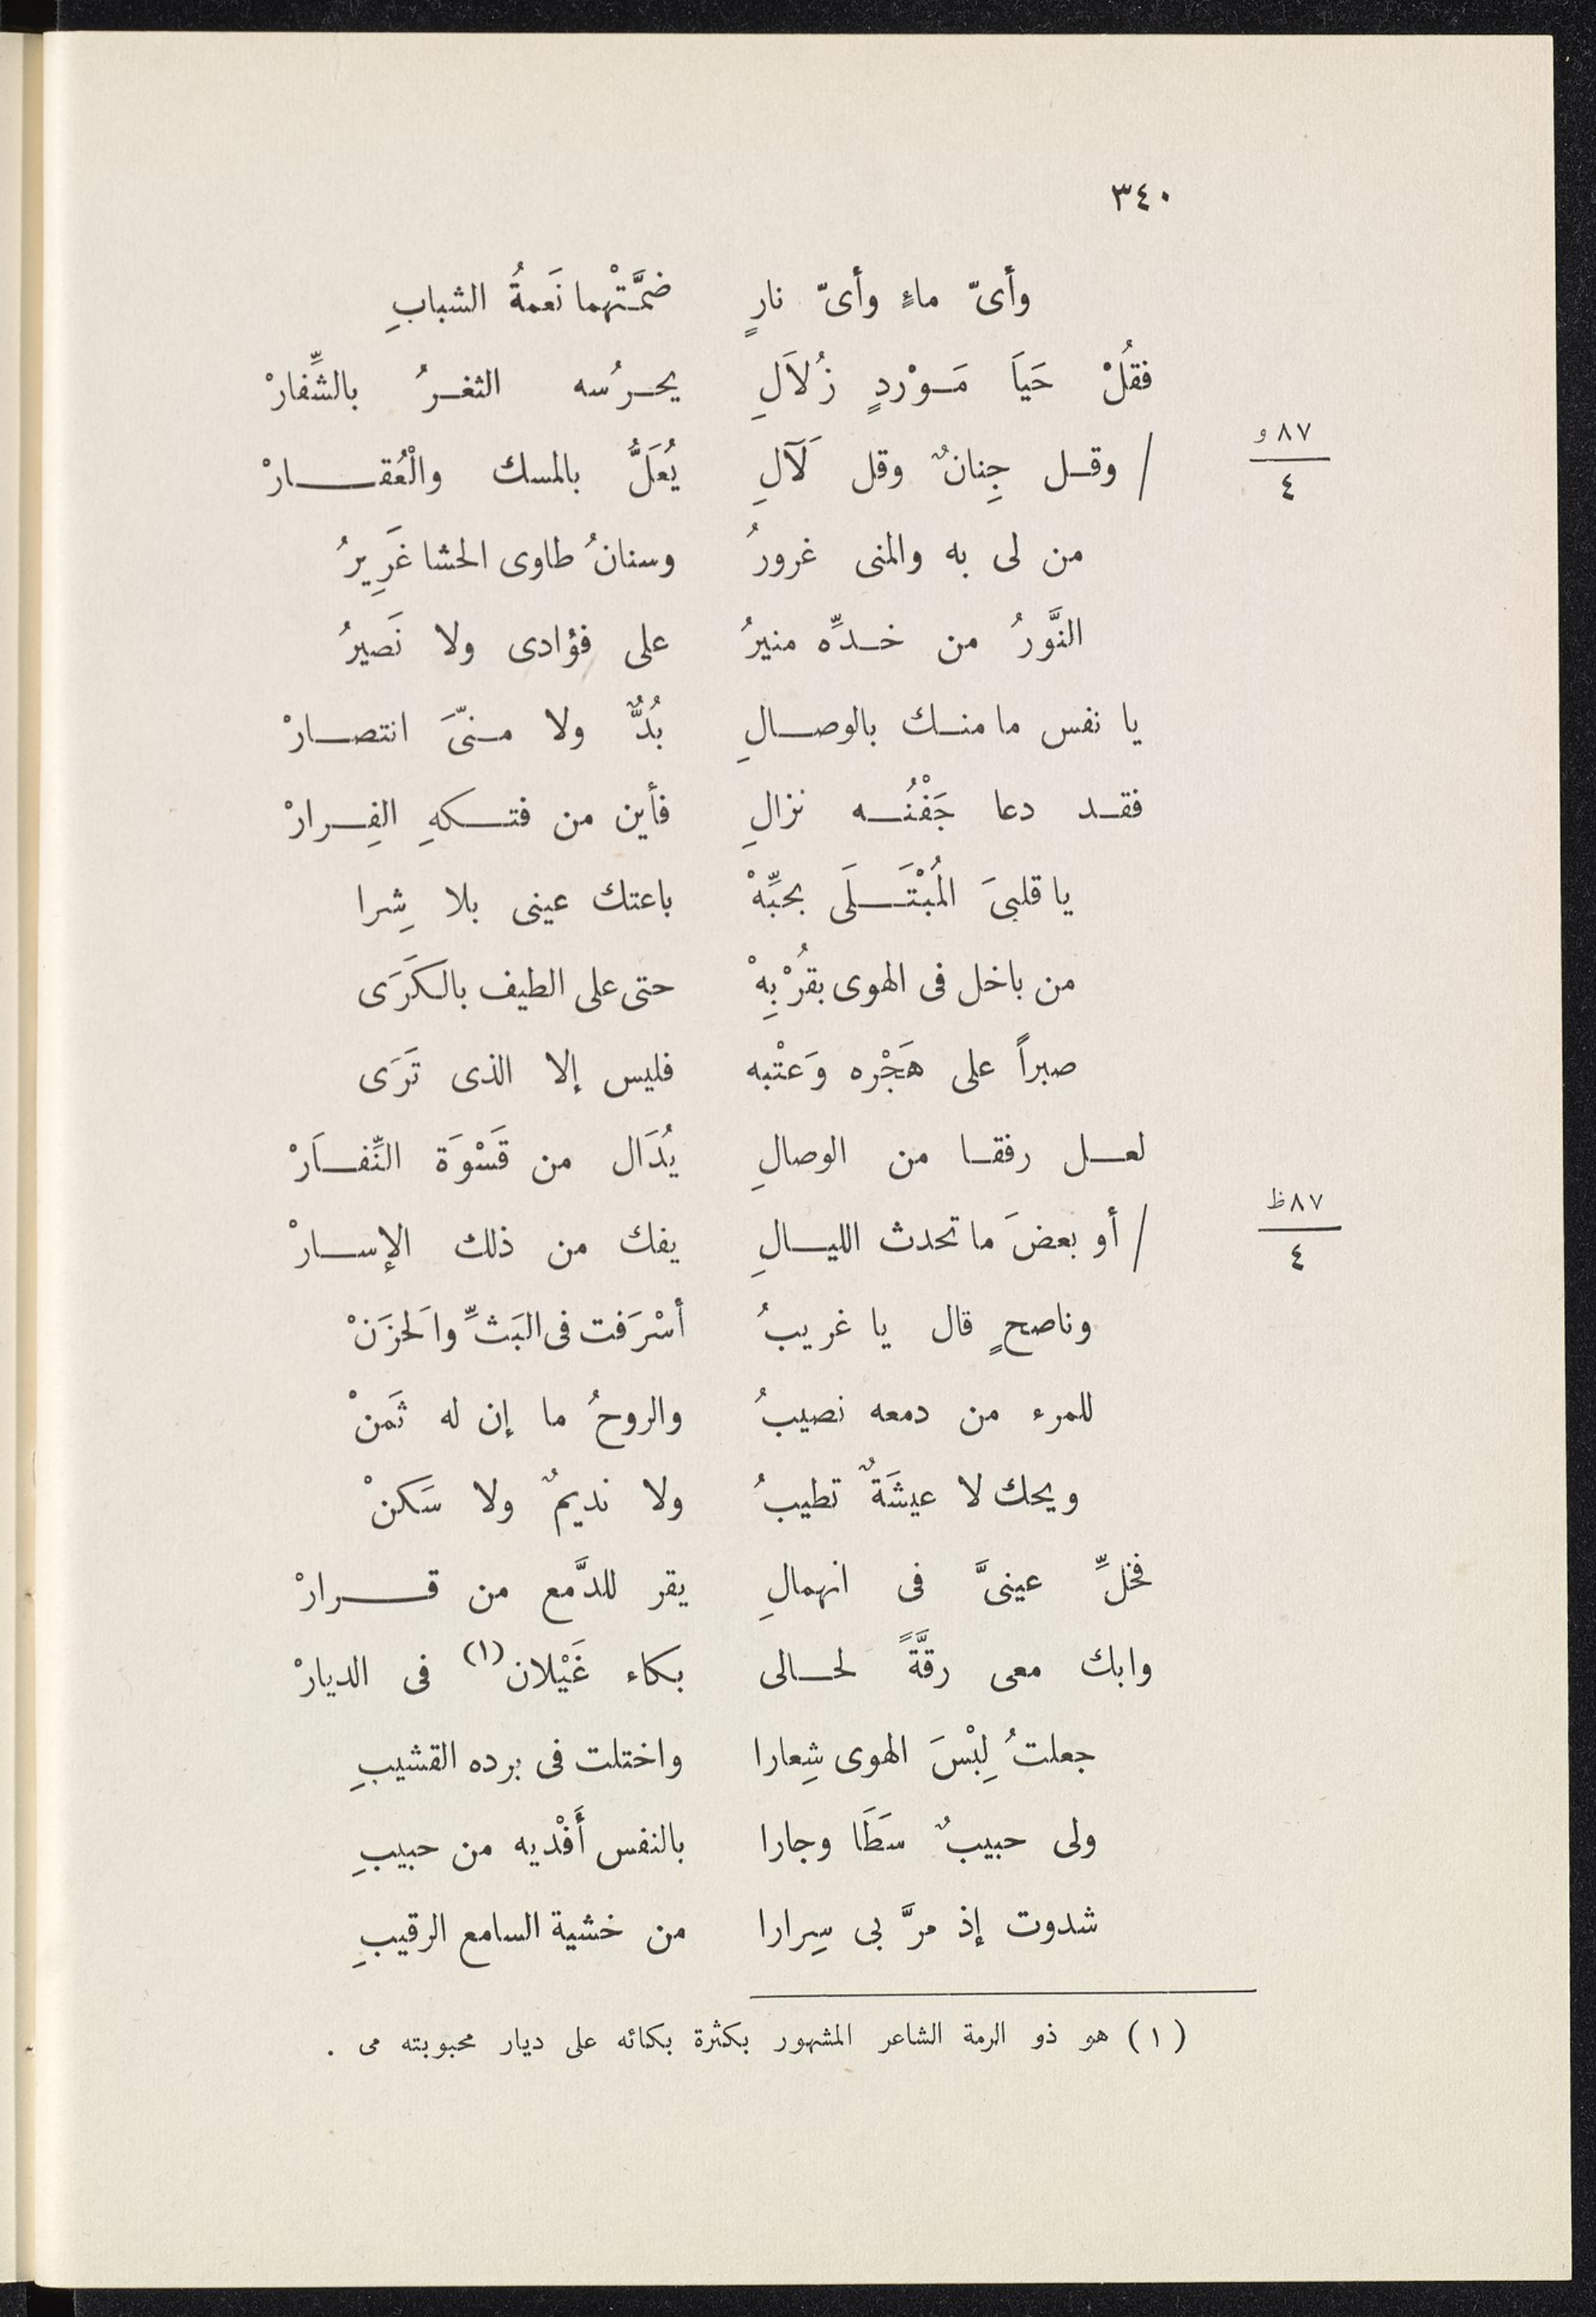 ٣٤٠
وأىّ ماءٍ وأىّ نارٍ ضمَّتْهما نَعمةُ الشبابِ
فقُلْ حَيَا مَوْردٍ زُلاَلِ يحرُسه الثغرُ بالشِّفارْ
/ وقل جِنانٌ وقل لَآلِ يُعَلُّ بالمسك والْعُقارْ
٨٧ و
٤
من لى به والمنى غرورُ وسنانُ طاوى الحشا غَرِيرُ
النَّورُ من خدِّه منيرُ على فؤادى ولا نَصيرُ
يا نفس ما منك بالوصالِ بُدٌّ ولا منىَّ انتصارْ
فقد دعا جَفْنُه نزالِ فأين من فتكهِ الفِرارْ
يا قلبىَ المُبْتَلَى بحبِّهْ باعتك عينى بلا شِرا
من باخل فى الهوى بقُرْبِهْ حتى على الطيف بالكَرَى
صبراً على هَجْره وَعتْبه فليس إلا الذى تَرَى
لعل رفقا من الوصالِ يُدَال من قَسْوَة النِّفاَرْ
/ أو بعضَ ما تحدث الليالِ يفك من ذلك الإسارْ
٨٧ ظ
٤
وناصحٍ قال يا غريبُ أسْرَفت فى البَثِّ واَلحزَنْ
للمرء من دمعه نصيبُ والروحُ ما إن له ثَمنْ
ويحك لا عيشَةٌ تطيبُ ولا نديمٌ ولا سَكنْ
فخلِّ عينىَّ فى انهمالِ يقر للدَّمع من قرارْ
وابك معى رقَّةً لحالى بكاء غَيْلان(١) فى الديارْ
جعلتُ لِبْسَ الهوى شِعارا واختلت فى برده القشيبِ
ولى حبيبٌ سَطَا وجارا بالنفس أَفْديه من حبيبِ
شدوت إذ مرَّ بى سِرارا من خشية السامع الرقيبِ
(١) هو ذو الرمة الشاعر المشهور بكثرة بكائه على ديار محبوبته مى .